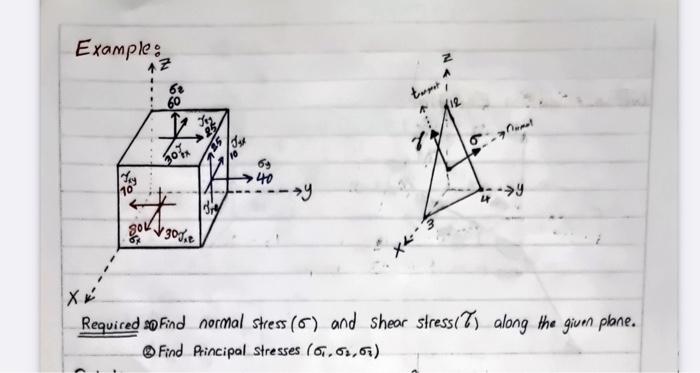 Example:
Z
σz
60
τzy
25
30 τzx
25
τyx
10
σy
40
y
τxy
10
80
σx
30 τxz
X
Z
12
τ
σ
normal
y
4
3
X
Required :① Find normal stress (σ) and shear stress (τ) along the given plane.
② Find Principal stresses (σ1, σ2, σ3)